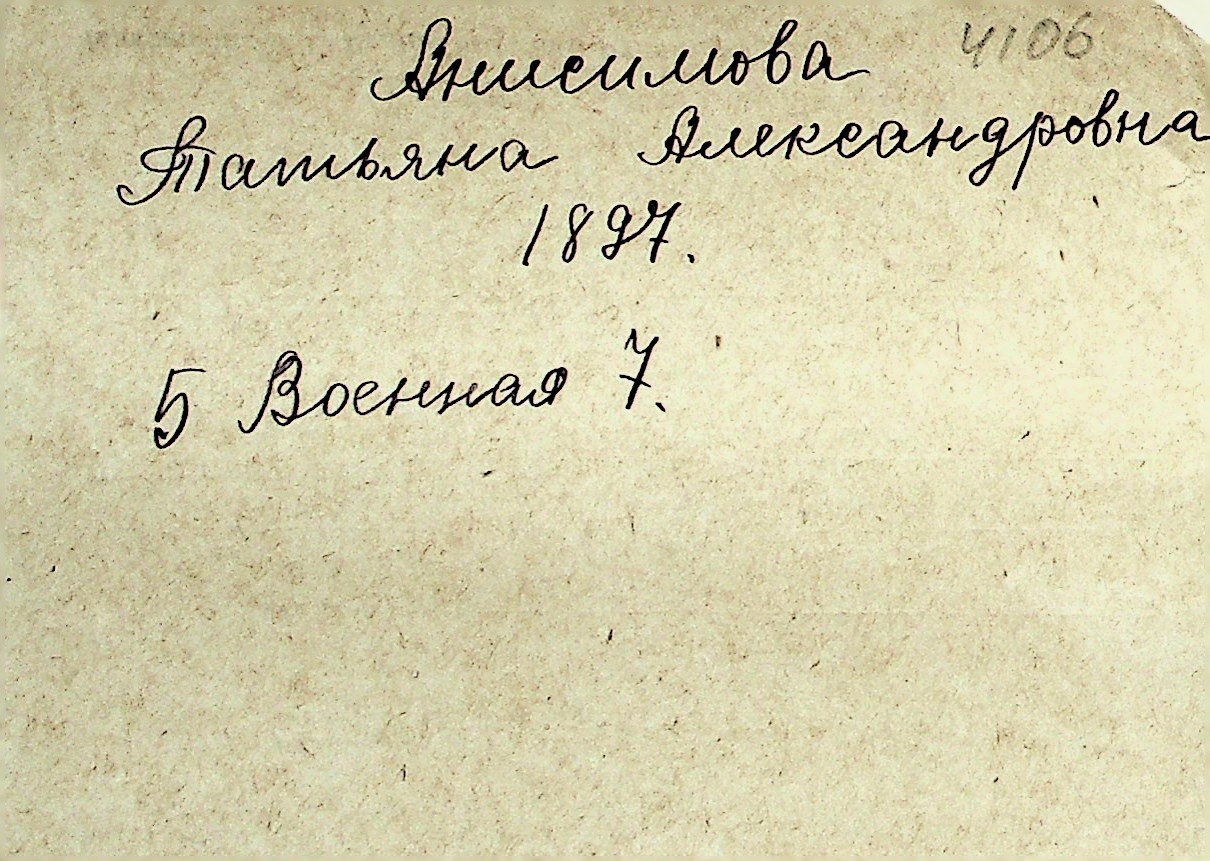 4106
Анисимова
Татьяна Александровна
1897.
5 Военная 7.